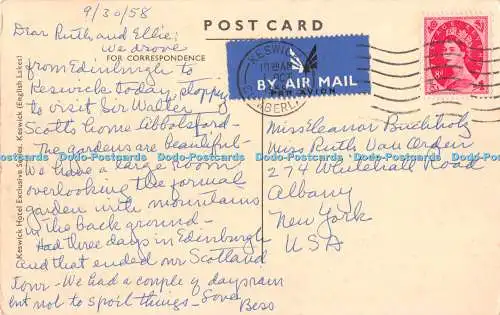 9/30/58
POST CARD
Dear Ruth and Ellie;
We drove
FOR CORRESPONDENCE
from Edinburgh to
Keswick today, stopping
to visit Sir Walter
Scotts home Abbotsford -
The gardens are beautiful -
We have a large room
overlooking the formal
garden with mountains
in the back ground -
Had three days in Edinburgh
and that ended our Scotland
tour - We had a couple of days rain
but not to spoil things - Love
Bess
Keswick Hotel Exclusive Series. Keswick (English Lakes)
BY AIR MAIL
PAR AVION
KESWICK
Miss Eleanor Buchholz
Miss Ruth Van Orden
274 Whitehall Road
Albany
New York
USA
Dodo-Postcards Dodo-Postcards Dodo-Postcards Dodo-Postcards Dodo-Postcards